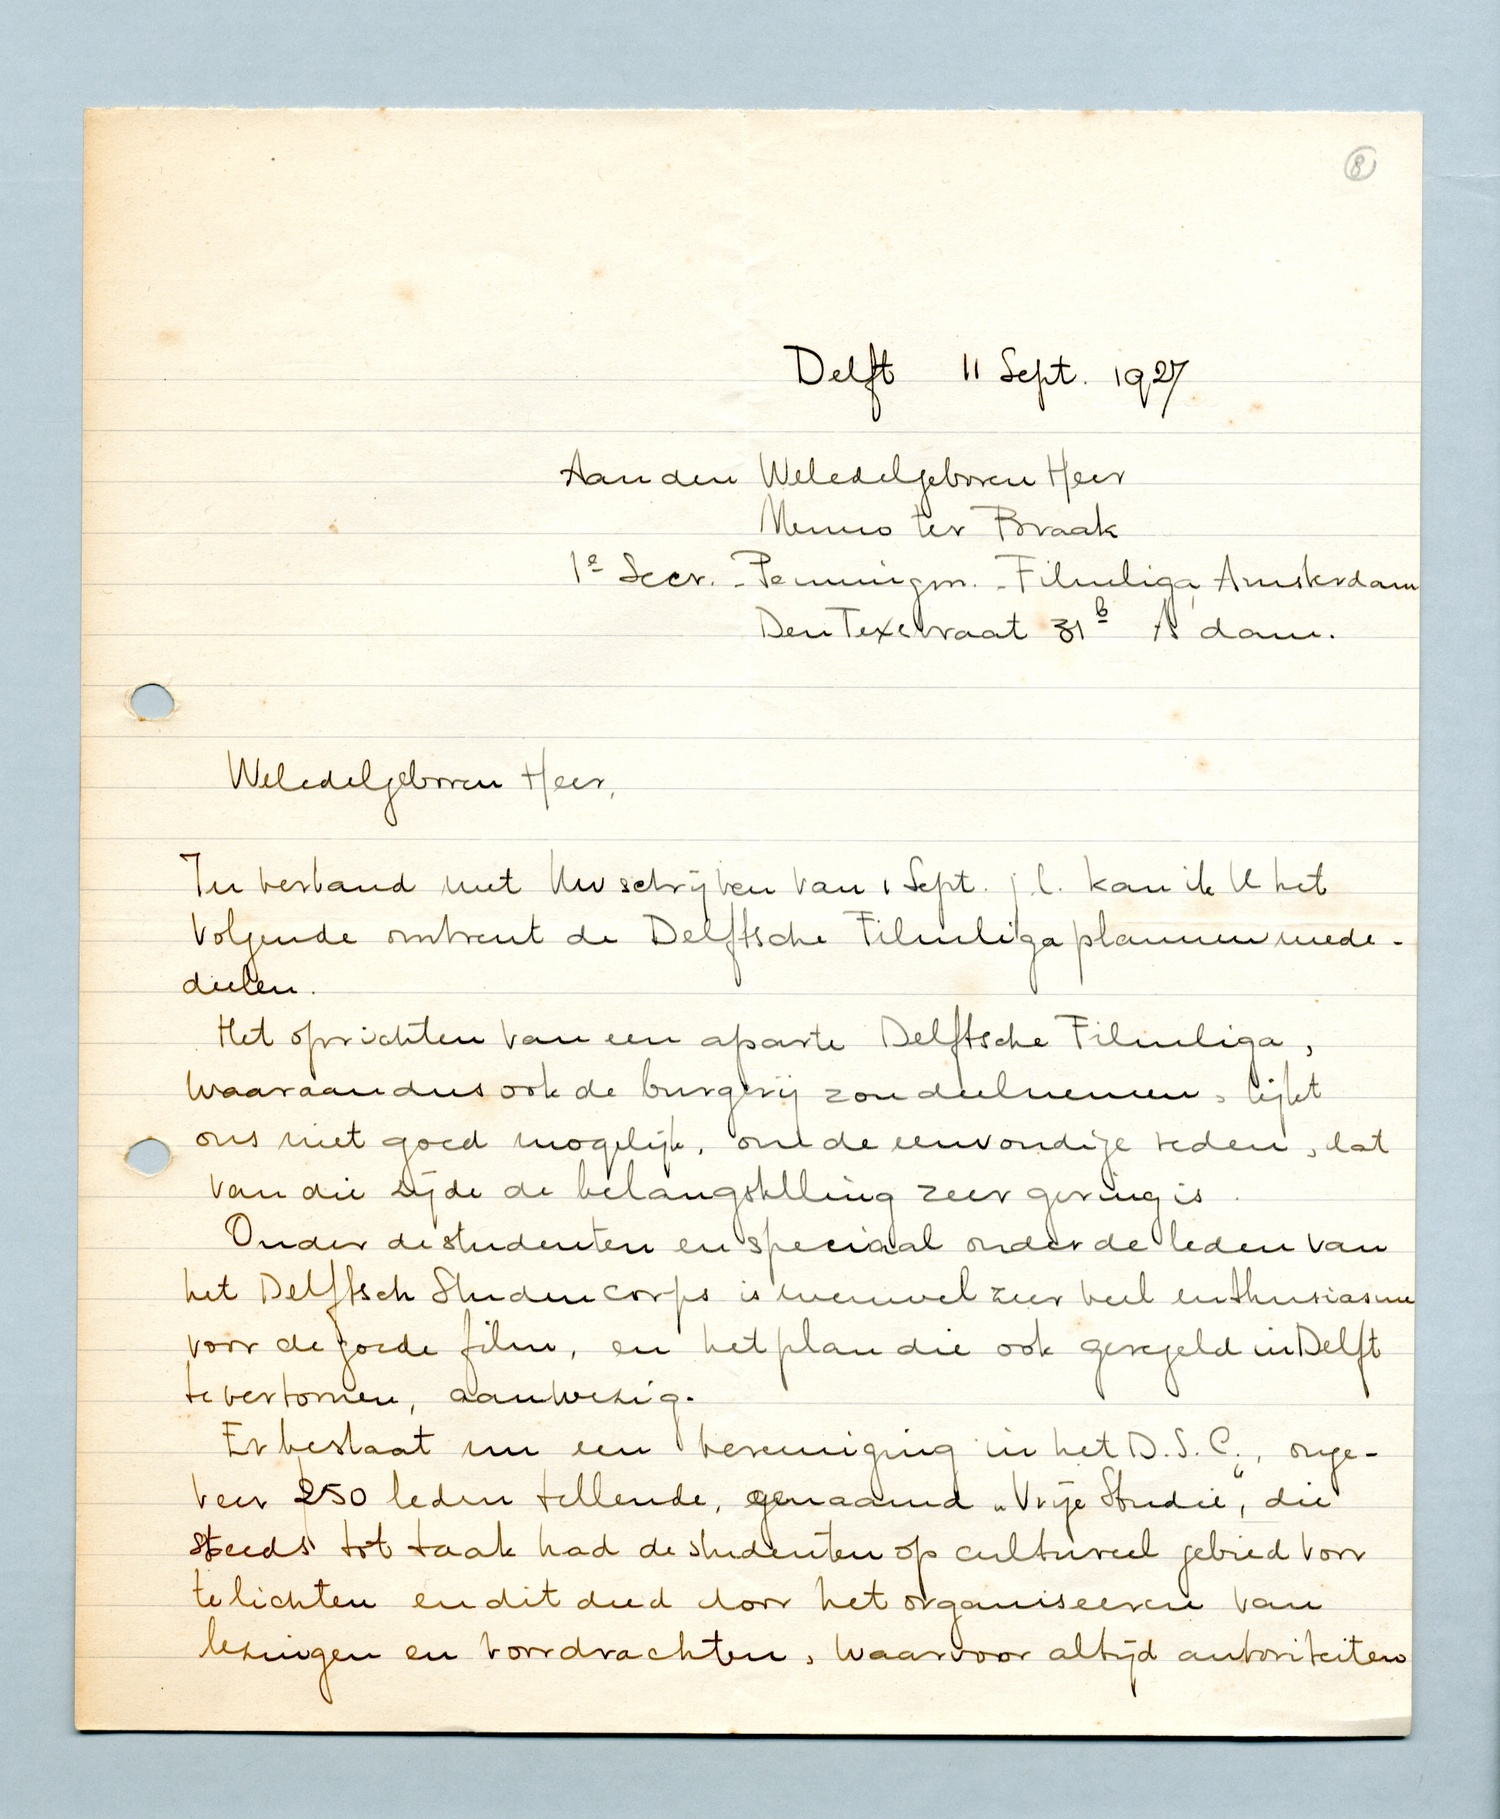 8
Delft 11 Sept. 1927
Aan den Weledelgeboren Heer
Menno ter Braak
1e Secr. - Penningm. - Filmliga, Amsterdam
Den Texstraat 31b A'dam.
Weledelgeboren Heer,
In verband met Uw schrijven van 1 Sept. j.l. kan ik U het
volgende omtrent de Delftsche Filmligaplannen mede-
deelen.
Het oprichten van een aparte Delftsche Filmliga,
waaraan dus ook de burgerij zou deelnemen, lijkt
ons niet goed mogelijk, om de eenvoudige reden, dat
van die zijde de belangstelling zeer gering is.
Onder de studenten en speciaal onder de leden van
het Delftsch Studencorps is evenwel zeer veel enthusiasme
voor de goede film, en het plan die ook geregeld in Delft
te vertonen, aanwezig.
Er bestaat nu een vereeniging in het D.S.C., onge-
veer 250 leden tellende, genaamd „Vrije Studie“, die
steeds tot taak had de studenten op cultureel gebied voor
te lichten en dit deed door het organiseeren van
lezingen en voordrachten, waarvoor altijd autoriteiten